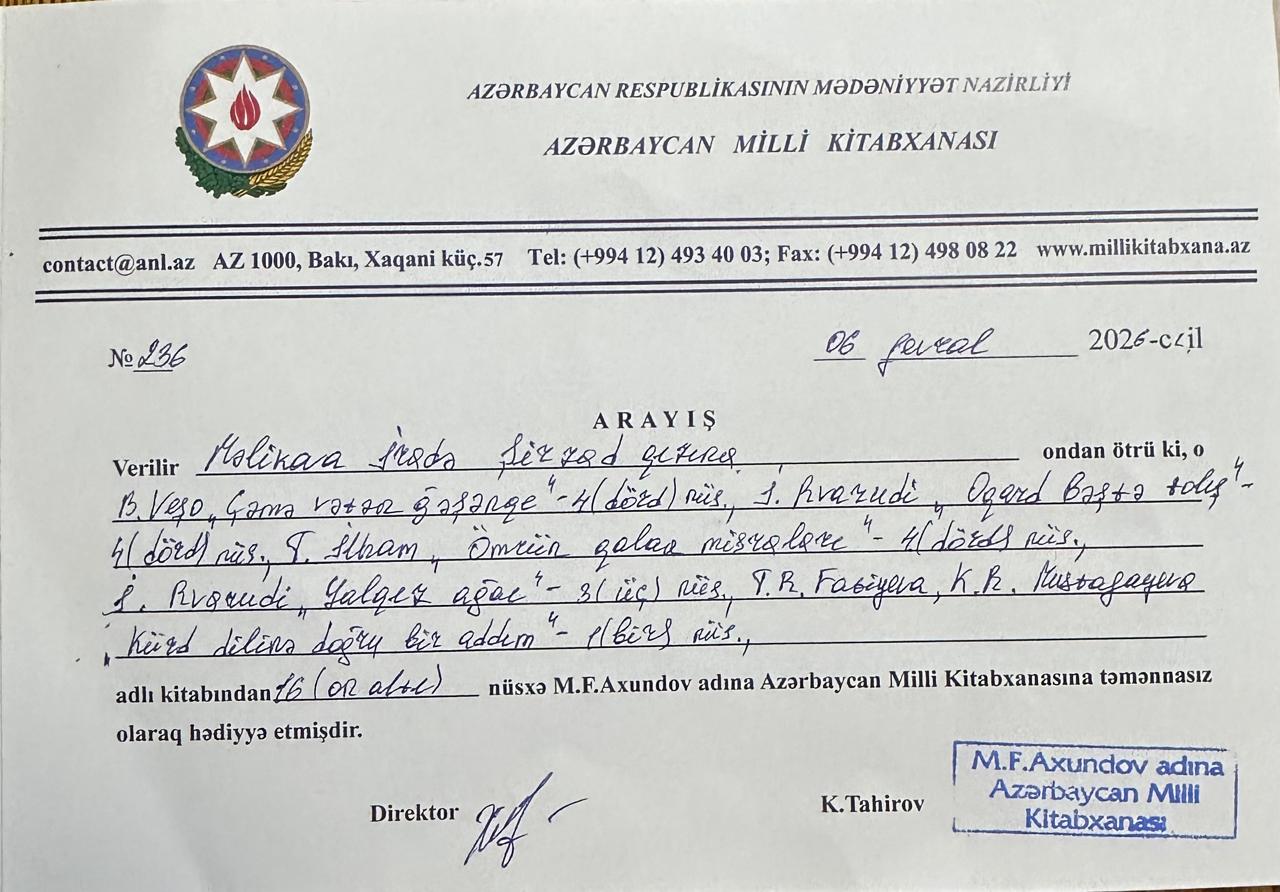 AZƏRBAYCAN RESPUBLİKASININ MƏDƏNİYYƏT NAZİRLİYİ
AZƏRBAYCAN MİLLİ KİTABXANASI
contact@anl.az AZ 1000, Bakı, Xaqani küç.57 Tel: (+994 12) 493 40 03; Fax: (+994 12) 498 08 22 www.millikitabxana.az
№ 236
06 fevral 2026-cı il
ARAYIŞ
Verilir Məlikova İradə Şirzad qızına ondan ötrü ki, o
B. Veşo „Çəmə vətən ğəşənge“ - 4 (dörd) nüs., İ. „ bəştə tolış“ -
4 (dörd) nüs., T. İlham „Ömrün qalan misraları“ - 4 (dörd) nüs.,
İ. „Yalqız ağac“ - 3 (üç) nüs., T.R. K.R. Mustafayeva
„Kürd dilinə doğru bir addım“ - 1 (bir) nüs.,
adlı kitabından 16 (on altı) nüsxə M.F.Axundov adına Azərbaycan Milli Kitabxanasına təmənnasız
olaraq hədiyyə etmişdir.
Direktor K.Tahirov
M.F.Axundov adına
Azərbaycan Milli
Kitabxanası